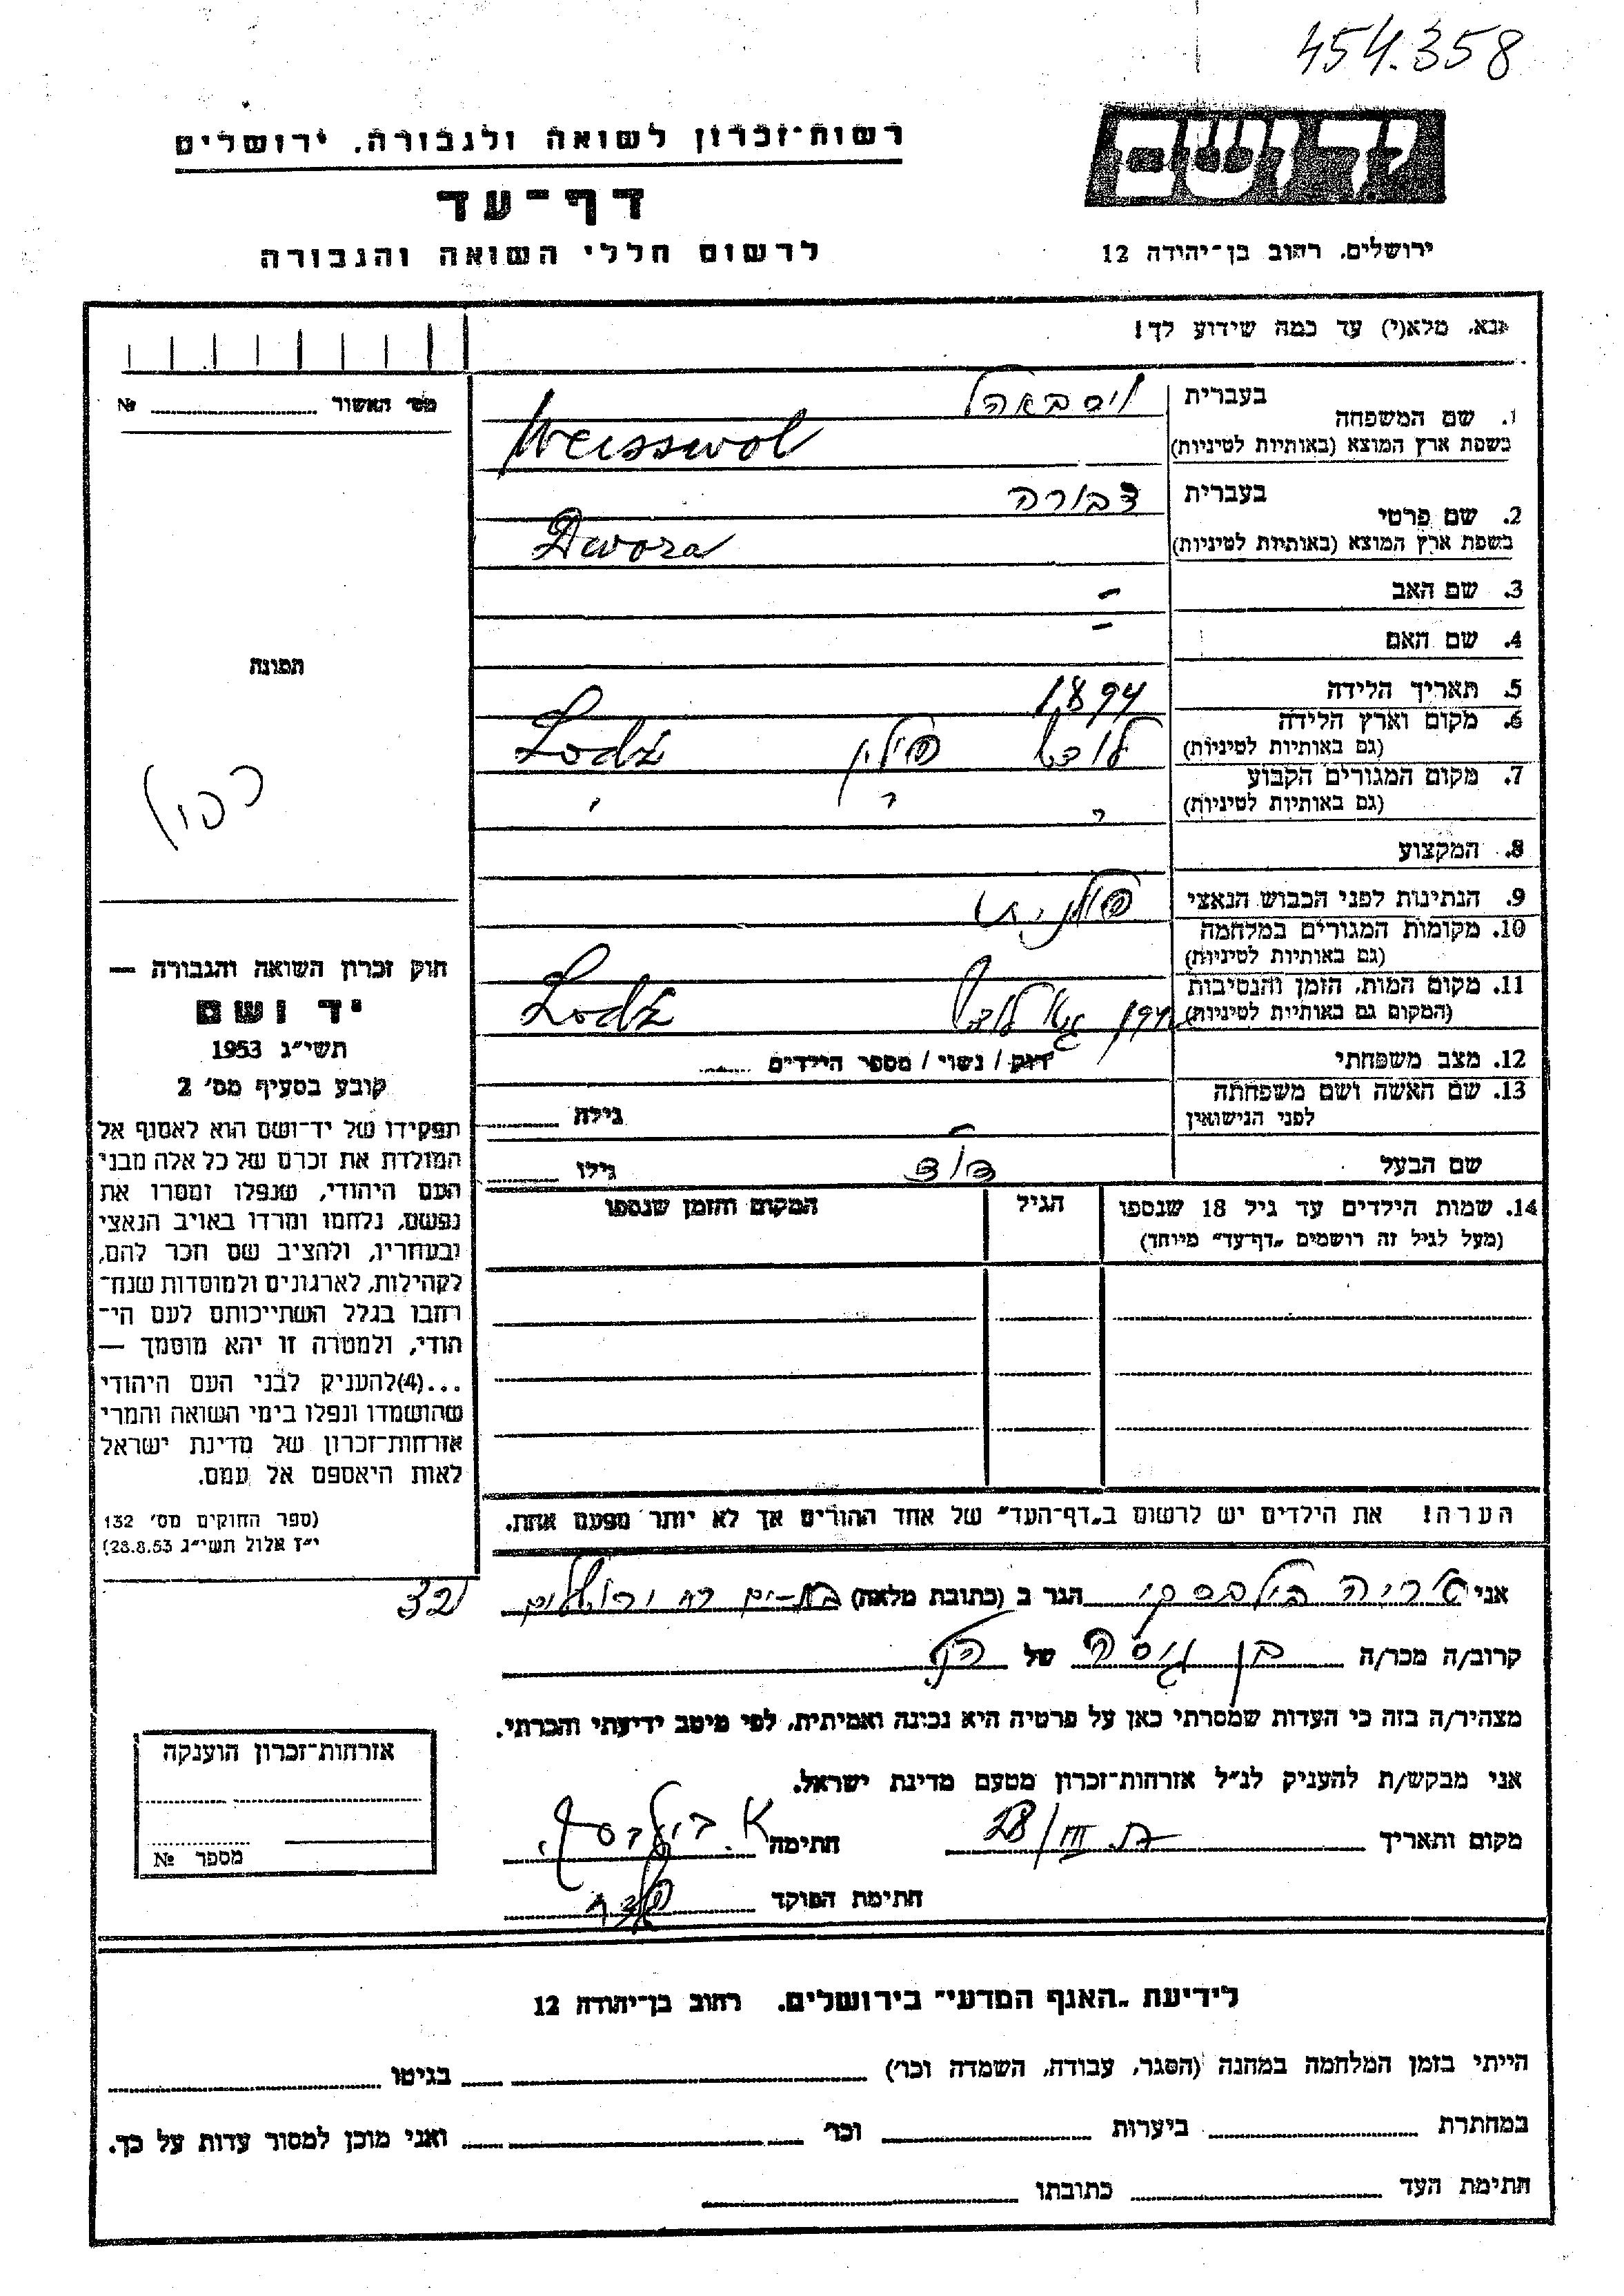 454.358
יד ושם
ירושלים, רחוב בן־יהודה 12
רשות־זכרון לשואה ולגבורה, ירושלים
דף־עד
לרשום חללי השואה והגבורה
נא, מלא(י) עד כמה שידוע לך!
מס׳ האשור № 
1. שם המשפחה בעברית
בשפת ארץ המוצא (באותיות לטיניות) Weisswol
2. שם פרטי בעברית דבורה
בשפת ארץ המוצא (באותיות לטיניות) Dwora
3. שם האב –
4. שם האם –
5. תאריך הלידה 1894
6. מקום וארץ הלידה (גם באותיות לטיניות) לודז׳ פולין Lodź
7. מקום המגורים הקבוע (גם באותיות לטיניות) " " "
8. המקצוע
9. הנתינות לפני הכבוש הנאצי פולנית
10. מקומות המגורים במלחמה (גם באותיות לטיניות)
11. מקום המות, הזמן והנסיבות (המקום גם באותיות לטיניות) גטו לודז׳ Lodź
12. מצב משפחתי רווק / נשוי / מספר הילדים
13. שם האשה ושם משפחתה לפני הנישואין – גילה
שם הבעל דוד גילו
14. שמות הילדים עד גיל 18 שנספו (מעל לגיל זה רושמים „דף־עד” מיוחד)
הגיל
המקום והזמן שנספו
תמונה
כפול
חוק זכרון השואה והגבורה —
יד ושם
תשי״ג 1953
קובע בסעיף מס׳ 2
תפקידו של יד־ושם הוא לאסוף אל
המולדת את זכרם של כל אלה מבני
העם היהודי, שנפלו ומסרו את
נפשם, נלחמו ומרדו באויב הנאצי
ובעוזריו, ולהציב שם וזכר להם,
לקהילות, לארגונים ולמוסדות שנח־
רבו בגלל השתייכותם לעם הי־
הודי, ולמטרה זו יהא מוסמך —
...(4)להעניק לבני העם היהודי
שהושמדו ונפלו בימי השואה והמרי
אזרחות־זכרון של מדינת ישראל
לאות היאספם אל עמם.
(ספר החוקים מס׳ 132
י״ז אלול תשי״ג 28.8.53)
הערה! את הילדים יש לרשום ב„דף־העד” של אחד ההורים אך לא יותר מפעם אחת.
אני אריה בילבסקי הגר ב (כתובת מלאה) בת-ים רח׳ ירושלים 32
קרוב/ה מכר/ה בן גיסה של הנ״ל
מצהיר/ה בזה כי העדות שמסרתי כאן על פרטיה היא נכונה ואמיתית, לפי מיטב ידיעתי והכרתי.
אני מבקש/ת להעניק לנ״ל אזרחות־זכרון מטעם מדינת ישראל.
מקום ותאריך חתימה א. בילבסקי
חתימת הפוקד
אזרחות־זכרון הוענקה
מספר №
לידיעת „האגף המדעי” בירושלים, רחוב בן־יהודה 12
הייתי בזמן המלחמה במחנה (הסגר, עבודה, השמדה וכו׳) בגיטו
במחתרת ביערות וכו׳ ואני מוכן למסור עדות על כך.
חתימת העד כתובתו